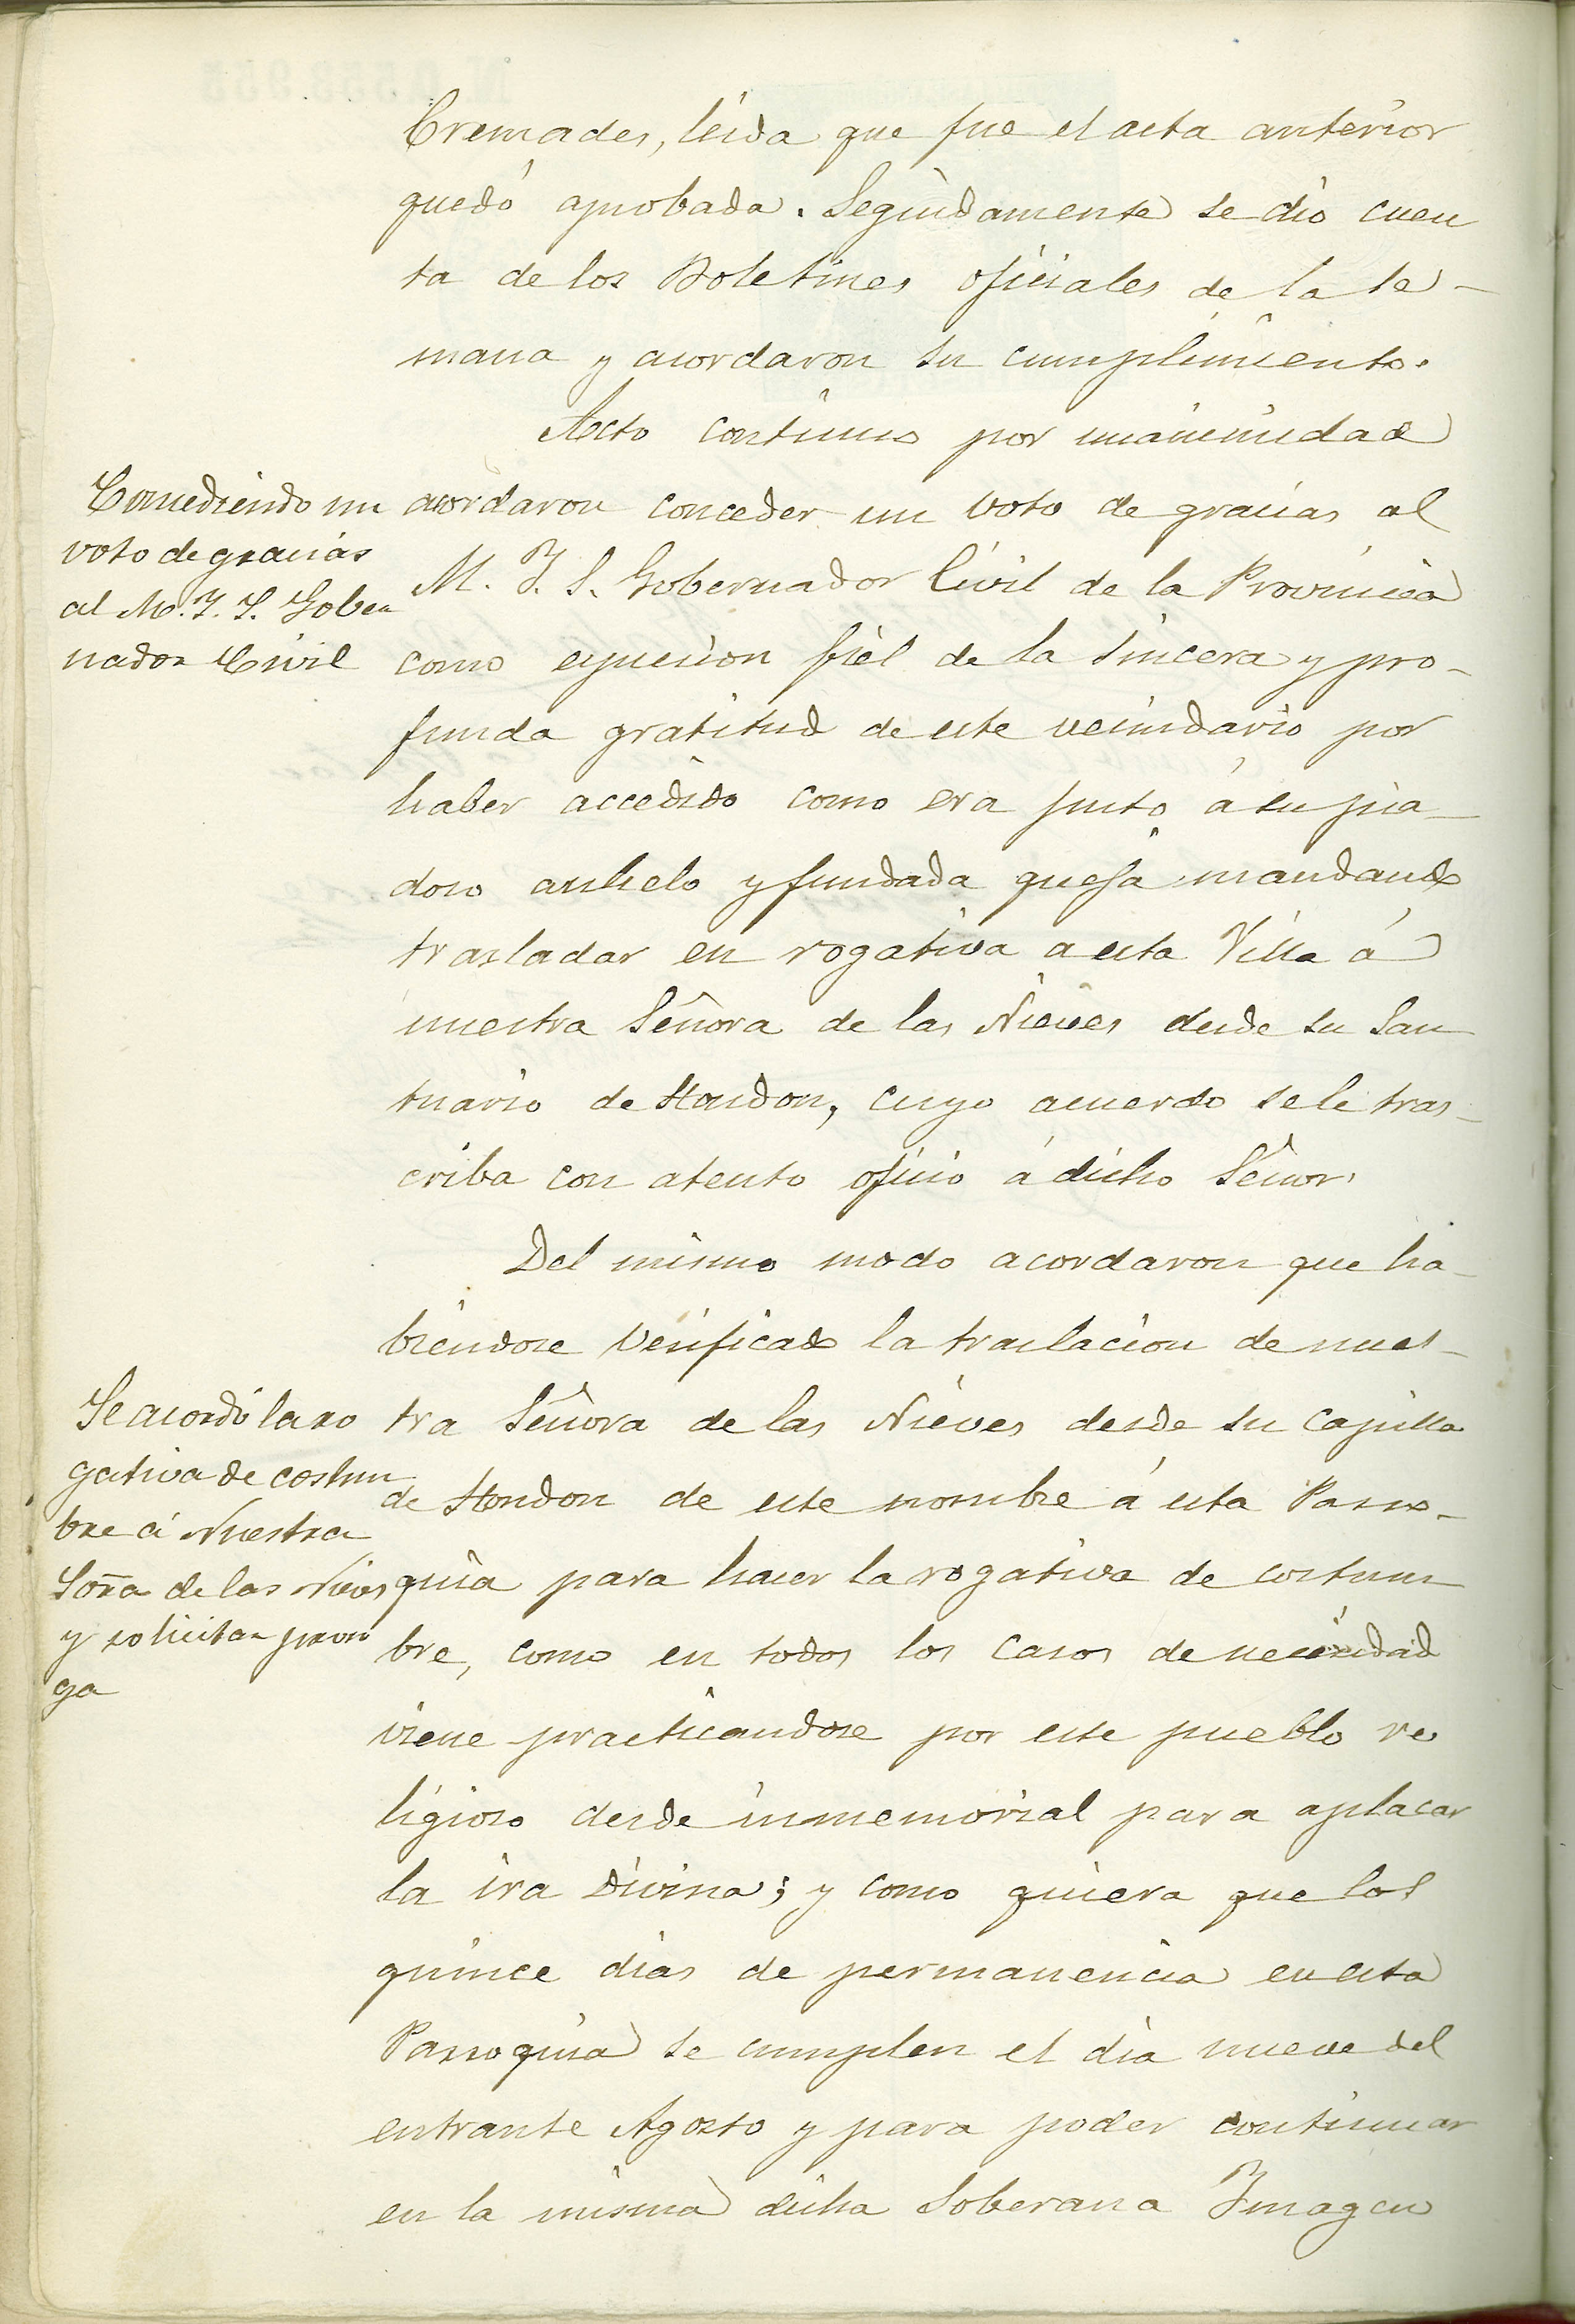 Cremades, leida que fue el acta anterior
quedó aprobada. Seguidamente se dió cuen
ta de los Boletines oficiales de la se-
mana y acordaron su cumplimiento.
Acto continuo por unanimidad
acordaron conceder un voto de gracias al
M. I. S. Gobernador Civil de la Provincia
como expresion fiel de la sincera y pro-
funda gratitud de este vecindario por
haber accedido como era justo á su pia-
doso anhelo y fundada queja mandando
trasladar en rogativa a esta Villa á
nuestra Señora de las Nieves desde su San
tuario de Hondon, cuyo acuerdo se le tras-
criba con atento oficio á dicho Señor.
Concediendo un
voto de gracias
al M. I. S. Gober
nador Civil
Del mismo modo acordaron que ha-
biendose verificado la traslacion de nues-
tra Señora de las Nieves desde su capilla
de Hondon de este nombre á esta Parro-
quia para hacer la rogativa de costum
bre, como en todos los casos de necesidad
viene practicandose por este pueblo re
ligioso desde inmemorial para aplacar
la ira Divina; y como quiera que los
quince dias de permanencia en esta
Parroquia se cumplen el dia nueve del
entrante Agosto y para poder continuar
en la misma dicha Soberana Imagen
Se acordó la ro
gativa de costum
bre á Nuestra
Sora de las Nieves
y solicitar prorro
ga